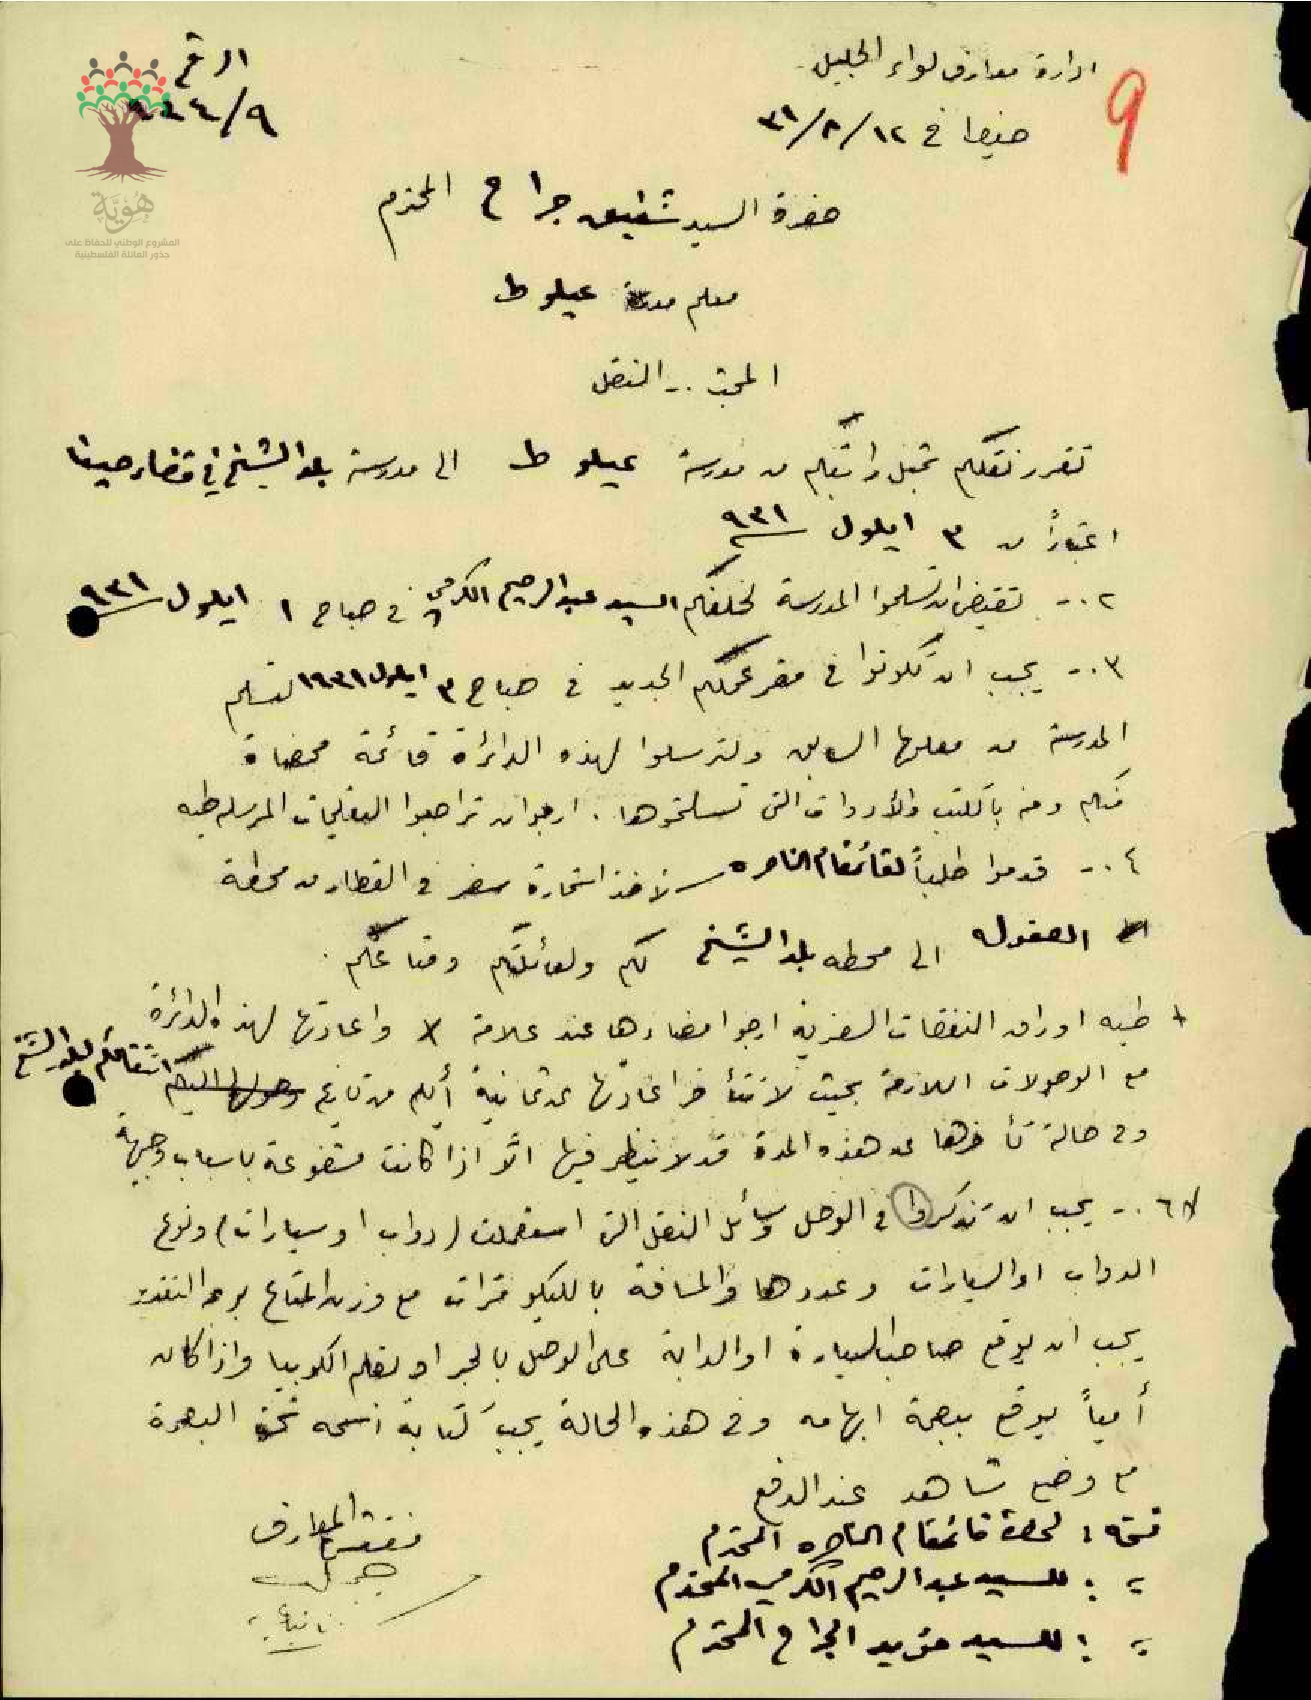 ادارة معارف لواء الجليل
الرقم
9
حيفا في ١٢/٨/٣١
٩/٤٤
هُوِيَّة
المشروع الوطني للحفاظ على
جذور العائلة الفلسطينية
حضرة السيد شفيق جراح المحترم
معلم مدرسة عيلوط
المبحث .- النقل
تقرر نقلكم بمثل راتبكم من مدرسة عيلوط الى مدرسة بلد الشيخ في قضاء حيفا
اعتباراً من ٣ ايلول ٩٣١
٢.- تقتضي ان تسلموا المدرسة لخلفكم السيد عبد الرحيم الكرمي في صباح ١ ايلول ٩٣١
٣.- يجب ان تكونوا في مقر عملكم الجديد في صباح ٣ ايلول ١٩٣١ لتسلم
المدرسة من معلمها السابق ولترسلوا لهذه الدائرة قائمة ممضاة
منكم ومنه بالكتب والأدوات التي تسلمتموها . ارجو ان تراجعوا التعليمات المرسلة طيه
٤.- قدموا طلباً لقائمقام الناصره لاخذ استمارة سفر في القطار من محطة
العفوله الى محطه بلد الشيخ لكم ولعائلتكم ومتاعكم .
طيه اوراق النفقات السفرية ارجو امضاءها عند علامة X واعادتها لهذه الدائرة
مع الوصولات اللازمة بحيث لا تتأخر اعادتها عن ثمانية أيام من تاريخ وصولها اليكم انتقالكم لبلد الشيخ
وفي حالة تأخرها عن هذه المدة قد لا ينظر فيها الا اذا كانت مشفوعة باسباب وجيهة
٦.- يجب ان تذكروا في الوصل وسائل النقل التي استعملت (دواب او سيارات) ونوع
الدواب او السيارات وعددها والمسافة بالكيلو مترات مع وزن المتاع
يجب ان يوقع صاحب السيارة او الدابة على الوصل بالحبر او بقلم الكوبيا واذا كان
أمياً يوقع ببصمة ابهامه وفي هذه الحالة يجب كتابة اسمه تحت البصمة
مع وضع شاهد عند الدفع
مفتش المعارف
نسخه : لحضرة قائمقام الناصره المحترم
" : للسيد عبد الرحيم الكرمي المحترم
" : للسيد فريد الجراح المحترم